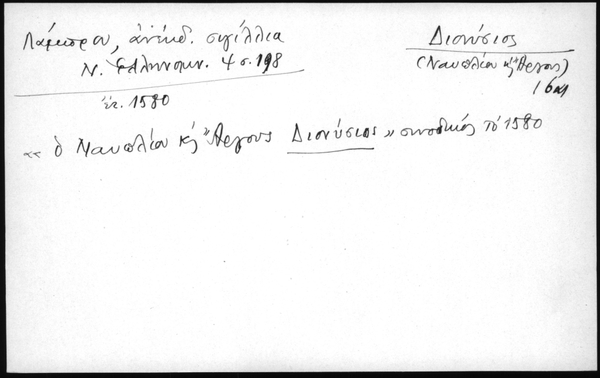 Λάμπρου, ἀνέκδ. σιγίλλια
Ν. Ἑλληνομν. 4 σ. 198
ἔτ. 1580
Διονύσιος
(Ναυπλίου κ̣ Ἄργους)
16
«ὁ Ναυπλίου κ̣ Ἄργους Διονύσιος» συνοδικός τῷ 1580